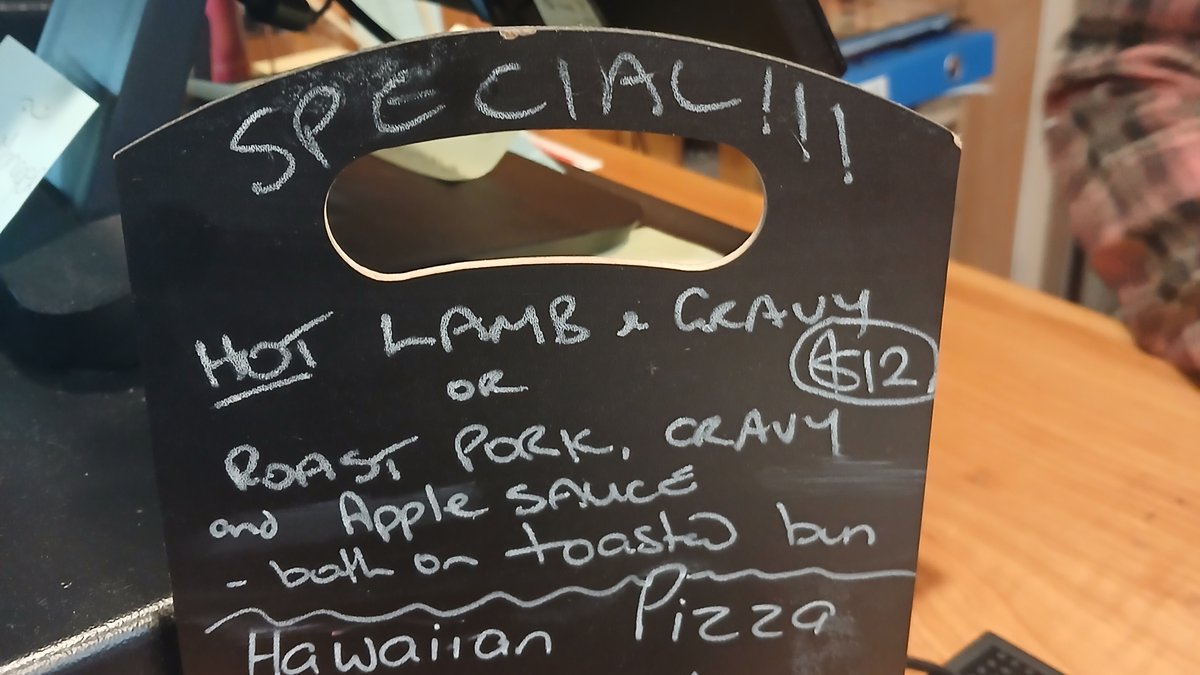 SPECIAL!!!
HOT LAMB & GRAVY
$12
OR
ROAST PORK, GRAVY
and Apple SAUCE
- both on toasted bun
Hawaiian Pizza